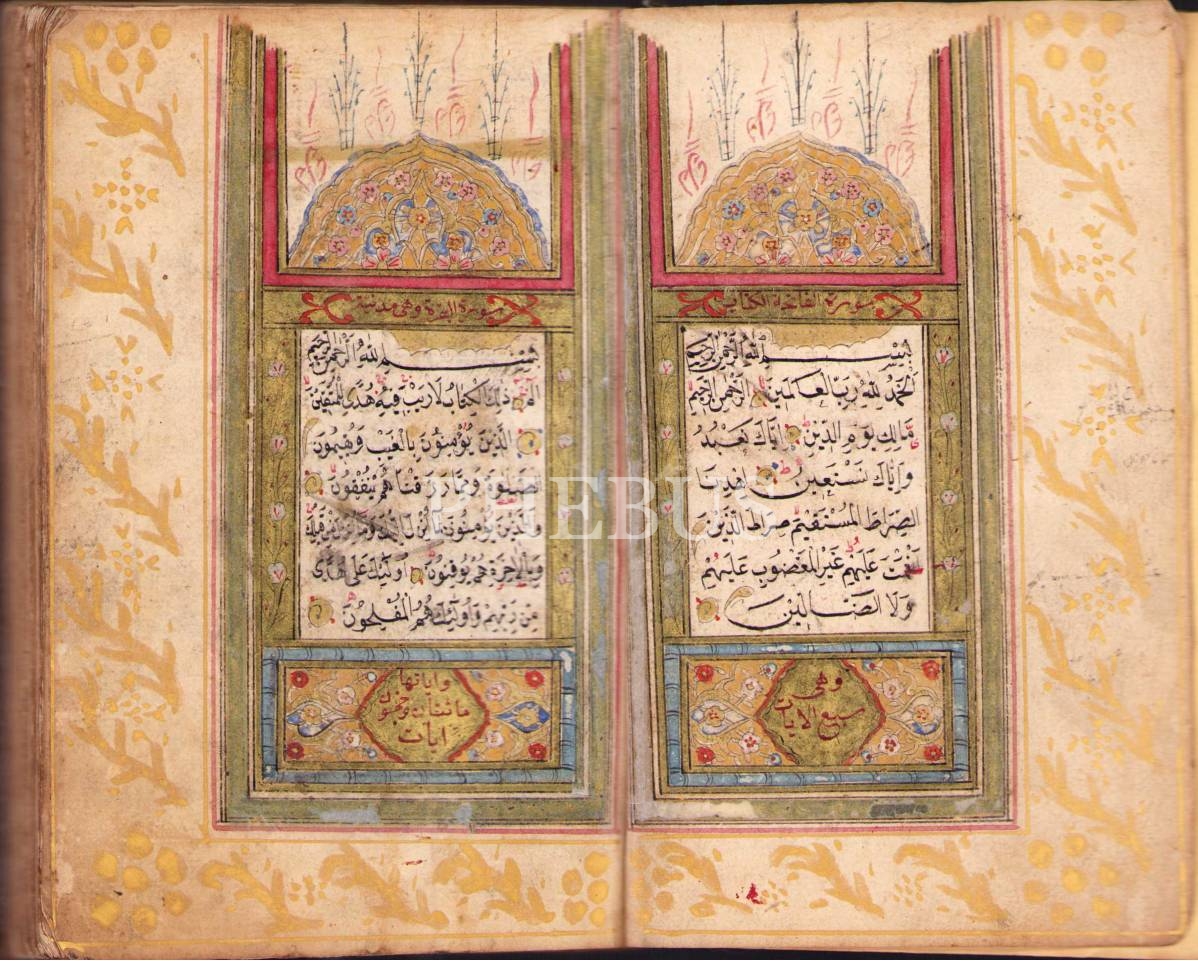 سورة الفاتحة الكتاب
بِسْمِ اللّٰهِ الرَّحْمٰنِ الرَّحِيمِ
اَلْحَمْدُ لِلّٰهِ رَبِّ الْعَالَمِينَ اَلرَّحْمٰنِ الرَّحِيمِ
مَالِكِ يَوْمِ الدِّينِ اِيَّاكَ نَعْبُدُ
وَاِيَّاكَ نَسْتَعِينُ اِهْدِنَا
الصِّرَاطَ الْمُسْتَقِيمَ صِرَاطَ الَّذِينَ
اَنْعَمْتَ عَلَيْهِمْ غَيْرِ الْمَغْضُوبِ عَلَيْهِمْ
وَلَا الضَّالِّينَ
وهى
سبع الايات
سورة البقرة وهى مدنية
بِسْمِ اللّٰهِ الرَّحْمٰنِ الرَّحِيمِ
الٓمٓ ذٰلِكَ الْكِتَابُ لَا رَيْبَ فِيهِ هُدًى لِلْمُتَّقِينَ
اَلَّذِينَ يُؤْمِنُونَ بِالْغَيْبِ وَيُقِيمُونَ
الصَّلٰوةَ وَمِمَّا رَزَقْنَاهُمْ يُنْفِقُونَ
وَالَّذِينَ يُؤْمِنُونَ بِمَا اُنْزِلَ اِلَيْكَ وَمَا اُنْزِلَ مِنْ قَبْلِكَ
وَبِالْاٰخِرَةِ هُمْ يُوقِنُونَ اُولٰئِكَ عَلٰى هُدًى
مِنْ رَبِّهِمْ وَاُولٰئِكَ هُمُ الْمُفْلِحُونَ
واياتها
مائتان وخمسون
ايات
PHEBUS